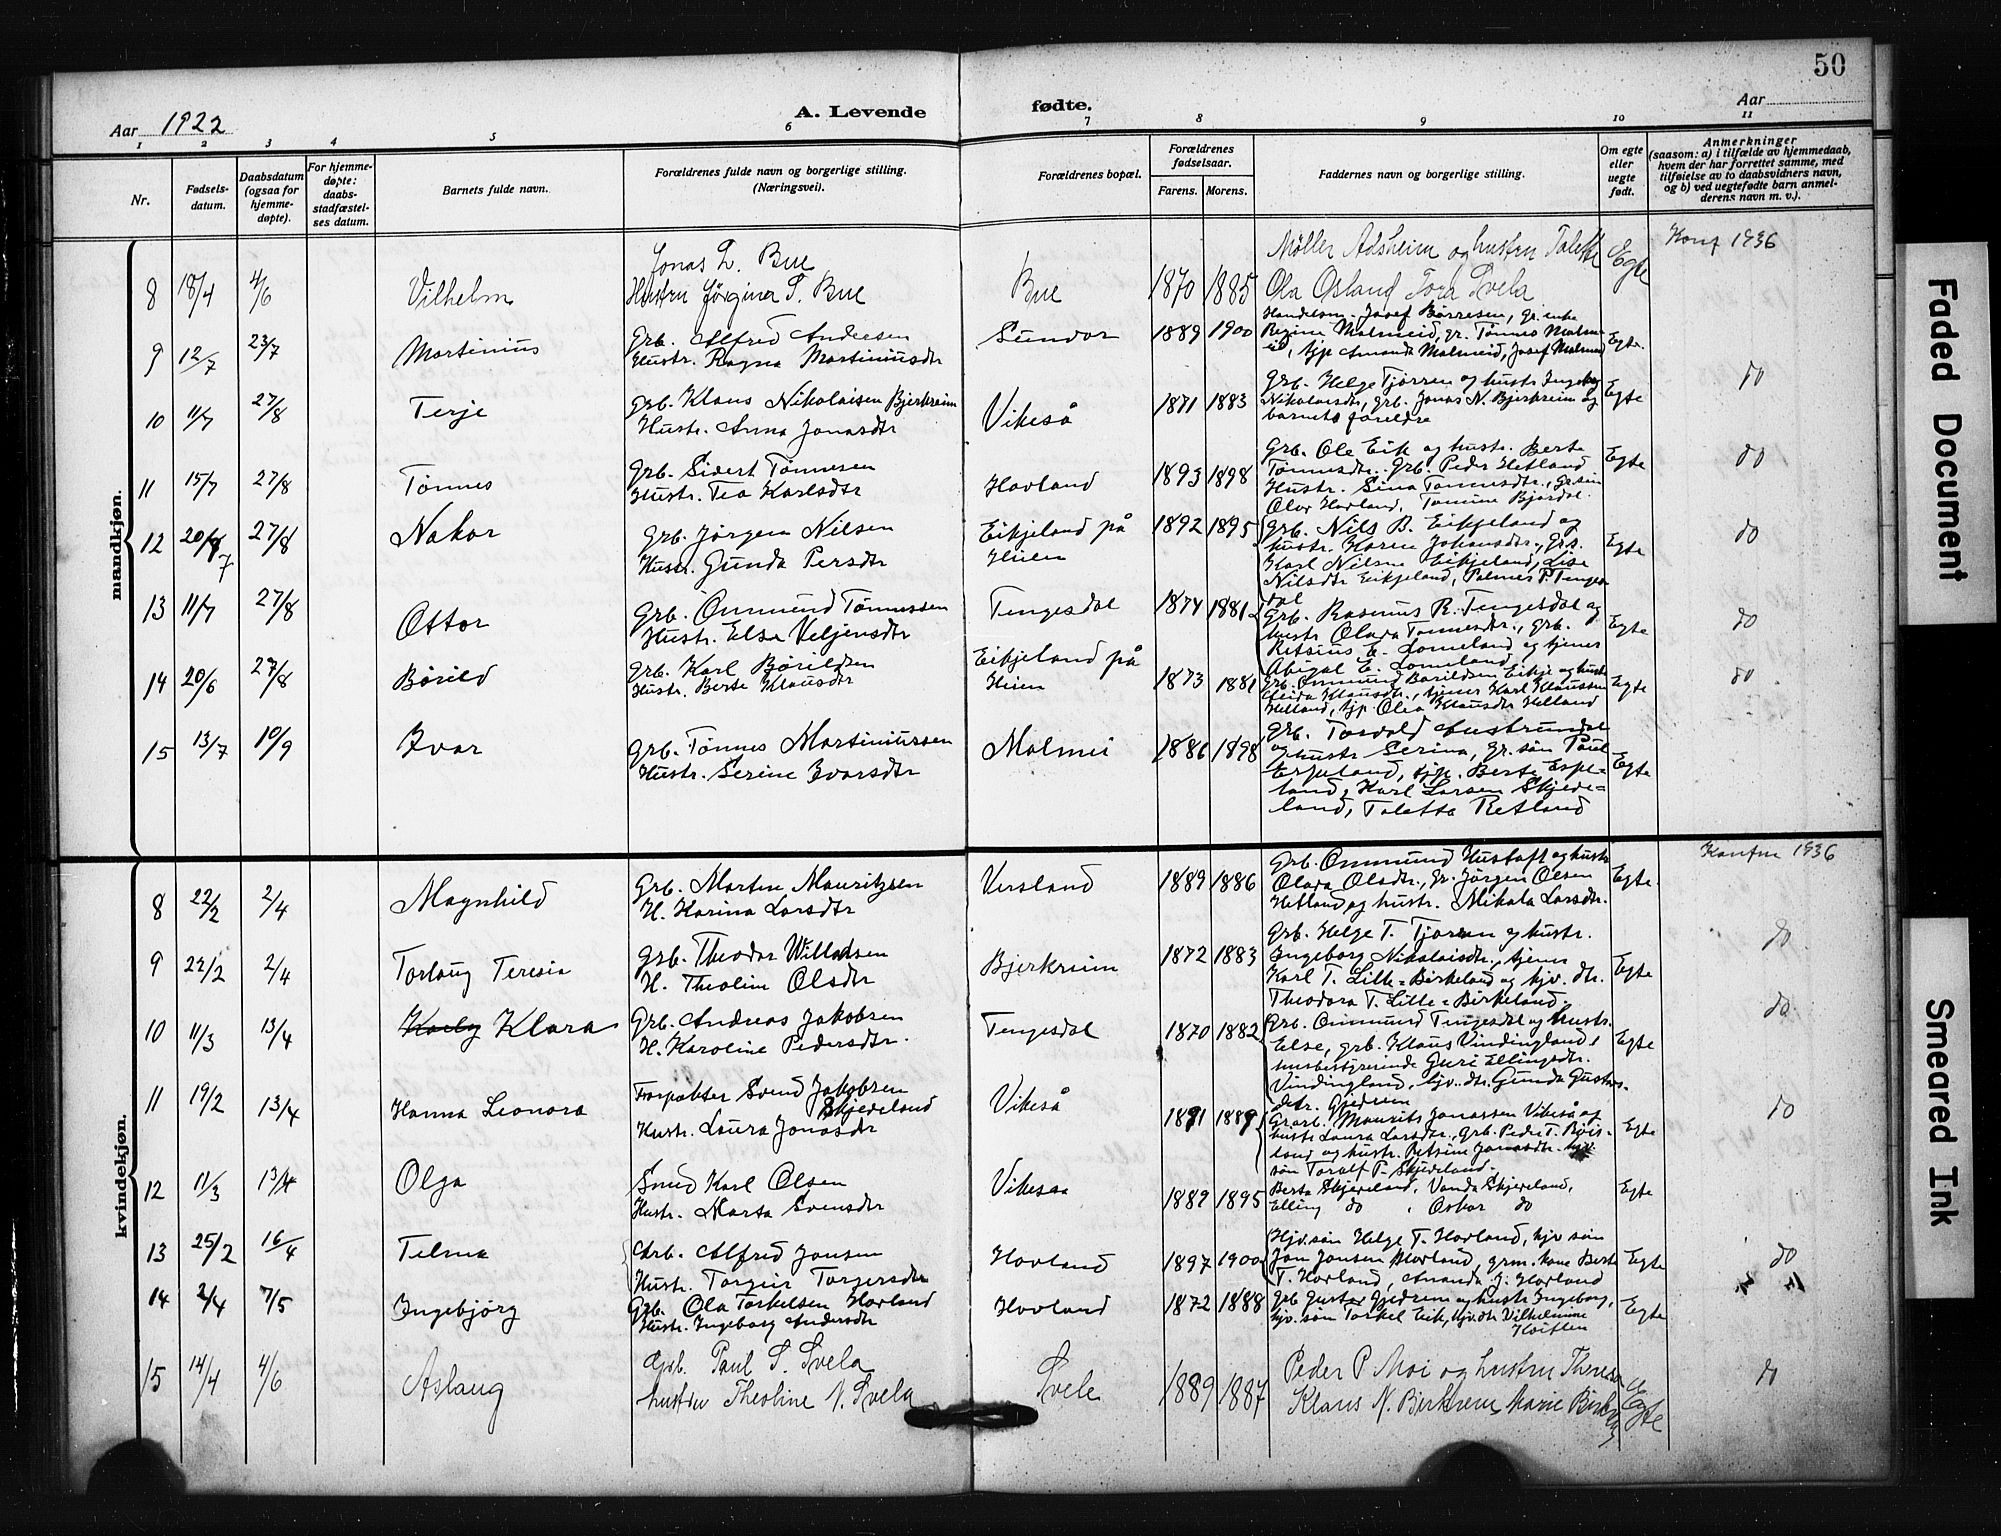 50
Aar 1922
A. Levende fødte.
Aar
1 2 3 4 5 6 7 8 9 10 11
Nr.
Fødsels-
datum.
Daabsdatum
(ogsaa for
hjemme-
døpte).
For hjemme-
døpte:
daabs-
stadfæstel-
ses datum.
Barnets fulde navn.
Forældrenes fulde navn og borgerlige stilling.
(Næringsvei).
Forældrenes bopæl.
Forældrenes
fødselsaar.
Farens. Morens.
Faddernes navn og borgerlige stilling.
Om egte
eller
uegte
født.
Anmerkninger
(saasom: a) i tilfælde av hjemmedaab,
hvem der har forrettet samme, med
tilføielse av to daabsvidners navn,
og b) ved uegtefødte barn anmel-
derens navn m. v.).
mandkjøn.
8 18/4 4/6 Vilhelm
Jonas L. Bue
Hustru Jørgine S. Bue
Bue 1870 1885
Møller Adsheim og hustru Talette
Ola Osland Tora Svela
Egte
Konf 1936
9 12/7 23/7 Martinius
Grb. Alfred Andersen
Hustr. Ragna Martiniusdtr
Sundvor 1889 1900
Handelsm. Josef Børresen, gr. enke
Regine Malmeid, gr. Tønnes Malme
id, tjp Amanda Malmeid, Josef Malmeid
Egte.
do
10 11/7 27/8 Terje
Grb. Klaus Nikolaisen Bjerkreim
Hustr. Anna Jonasdtr
Vikeså 1871 1883
Grb. Helge Tjørren og hustr Ingeborg
Nikolaisdtr, grb. Jonas N. Bjerkreim og
barnets foreldre
Egte
11 15/7 27/8 Tønnes
Grb. Sivert Tønnesen
Hustr. Tea Karlsdtr
Hovland 1893 1898
Grb. Ole Eik og hustr. Berte
Tønnesdtr. Grb. Peder Hetland
Hustr. Sina Tønnesdtr.,
Olav Hovland, Tomine Bjordal.
Egte
do
12 20/7 27/8 Nakor
Grb. Jørgen Nilsen
Hustr. Gunda Persdtr
Eikjeland på
Heien
1892 1895
Grb. Nils B. Eikjeland og
hustr. Karen Johansdtr., grs.
Karl Nilsen Eikjeland, Lise
Nilsdtr Eikjeland, Palmer P. Tenges
dal
Egte
do
13 11/7 27/8 Ottar
Grb. Ommund Tønnessen
Hustr. Else Veljensdtr
Tengesdal 1874 1881
Grb. Rasmus R. Tengesdal og
hustr Olava Tønnesdtr., grb.
Retsius E. Lomeland og tjener
Abigal E. Lomeland
Egte
do
14 20/6 27/8 Børild
Grb. Karl Børildsen
Hustr. Berte Klausdtr
Eikjeland på
Heien
1873 1881
Grb. Ommund Barildsen Eikje og hustr
Klausdtr., tjener Karl Klaussen
Helland, tjp. Olea Klausdtr Helland
Egte
do
15 13/7 10/9 Ivar
Grb. Tønnes Martiniussen
Hustr. Serine Ivarsdtr
Malmei 1886 1898
Grb. Torvald Austrumdal
og hustr Serina, gr. søn Paul
Espeland, tjp. Berte Espe=
land, Karl Larsen Skjeve=
land, Taletta Retland
Egte
kvindekjøn.
8 22/2 2/4 Magnhild
Grb. Martin Mauritzsen
H. Karina Larsdtr
Versland 1889 1886
Grb. Ommund Hustoft og hustr
Olava Olsdtr., Gr. Jørgen Olsen
Hetland og hustr. Mikala Larsdtr.
Egte.
Konfm 1936
9 22/2 2/4 Torlaug Teresia
Grb. Theodor Willadsen
H. Theoline Olsdtr
Bjerkreim 1872 1883
Grb. Helge T. Tjørren og hustr.
Ingeborg Nikolaisdtr., tjener
Karl T. Lille=Birkeland og hjv. dtr.
Theodora T. Lille=Birkeland.
Egte
do
10 11/3 13/4 Klara
Grb. Andreas Jakobsen
H. Karoline Pedersdtr.
Tengesdal 1870 1882
Grb. Ommund Tengesdal og hustr.
Else, grb. Klaus Vindingland,
husbestyrerinde Guri Ellingsdtr.
Vindingland, hjv. dtr. Gunda Gustavs-
dtr. Gjedrem
Egte
do
11 19/2 13/4 Hanna Leonora
Forpakter Svend Jakobsen
Skjeveland
Hustr. Laura Jonasdtr
Vikeså 1891 1889
Grarb. Maurits Jonassen Vikeså og
hustr Laura Larsdtr., Grb. Peder T. Røis-
land og hustr. Retsine Jonasdtr. hjv.
søn Toralf P. Skjeveland.
Egte
do
12 11/3 13/4 Olga
Smed Karl Olsen
Hustr. Marta Svensdtr
Vikesaa 1889 1895
Berta Skjeveland, Vanda Skjeveland,
Elling do, Oskar do
Egte
13 25/2 16/4 Telma
Arb. Alfred Jonsen
Hustr. Torgine Torgersdtr
Hovland 1897 1900
Hjv. søn Helge T. Hovland, hjv søn
Jon Jonsen Hovland, grm. kone Berte
T. Hovland, Amanda J. Hovland
Egte
do
14 2/4 7/5 Ingebjørg
Grb. Ola Torkelsen Hovland
Hustr. Ingeborg Andersdtr
Hovland 1872 1888
Grb Gustav Gjedrem og hustr Ingeborg,
hjv. søn Torkel Eik, hjv. dtr Vilhelmine
Egte
15 14/4 4/6 Aslaug
Gsb. Paul S. Svela
hustru Theoline N. Svela
Svele 1889 1887
Peder P Moi og hustru Therese
Klaus N. Bjerkrem, Marie
Egte
do
Faded Document
Smeared Ink